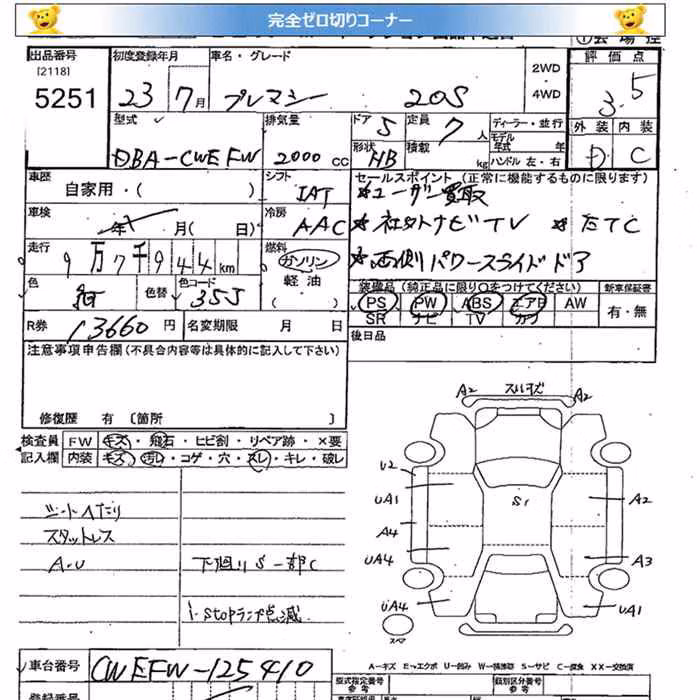 完全ゼロ切りコーナー
出品番号 初度登録年月 車名・グレード 評価点
[2118]
5251 23 7月 プレマシー 20S 2WD ・ 4WD 3.5
型式 排気量 ドア 5 定員 7 人 ディーラー・並行 外装 内装
モデル年式 年
DBA-CWEFW 2000 CC 形状 HB 積載 kg ハンドル 左・右 D C
車歴 シフト セールスポイント (正常に機能するものに限ります)
自家用・( ) IAT *ユーザー買取
車検 年 月( 日) 冷房 AAC *社外ナビTV *ETC
走行 9万7千944km 燃料 ガソリン ・ 軽油 *両側パワースライドドア
色 紺 色替 色コード 35J 装備品 (純正品に限り○をつけてください) 新車保証書
PS PW ABS エアB AW 有・無
SR ナビ TV カワ
R券 13660円 名変期限 月 日 後日品
注意事項申告欄(不具合内容等は具体的に記入して下さい)
修復歴 有 〔箇所 〕
検査員 FW キズ・飛石・ヒビ割・リペア跡・×要
記入欄 内装 キズ・汚れ・コゲ・穴・スレ・キレ・破レ
シートヘタリ
スタットレス
A・U 下廻りS一部C
i-stopランプ点滅
A2 スリキズ A2
U2
UA1 S1 A2
A4
UA4 A3
UA4 UA1
スペア
A…キズ E…エクボ U…凹み W…補修跡 S…サビ C…腐食 XX…交換済
車台番号 CWEFW-125410
型式指定番号 類別区分番号
参考 参考
登録番号